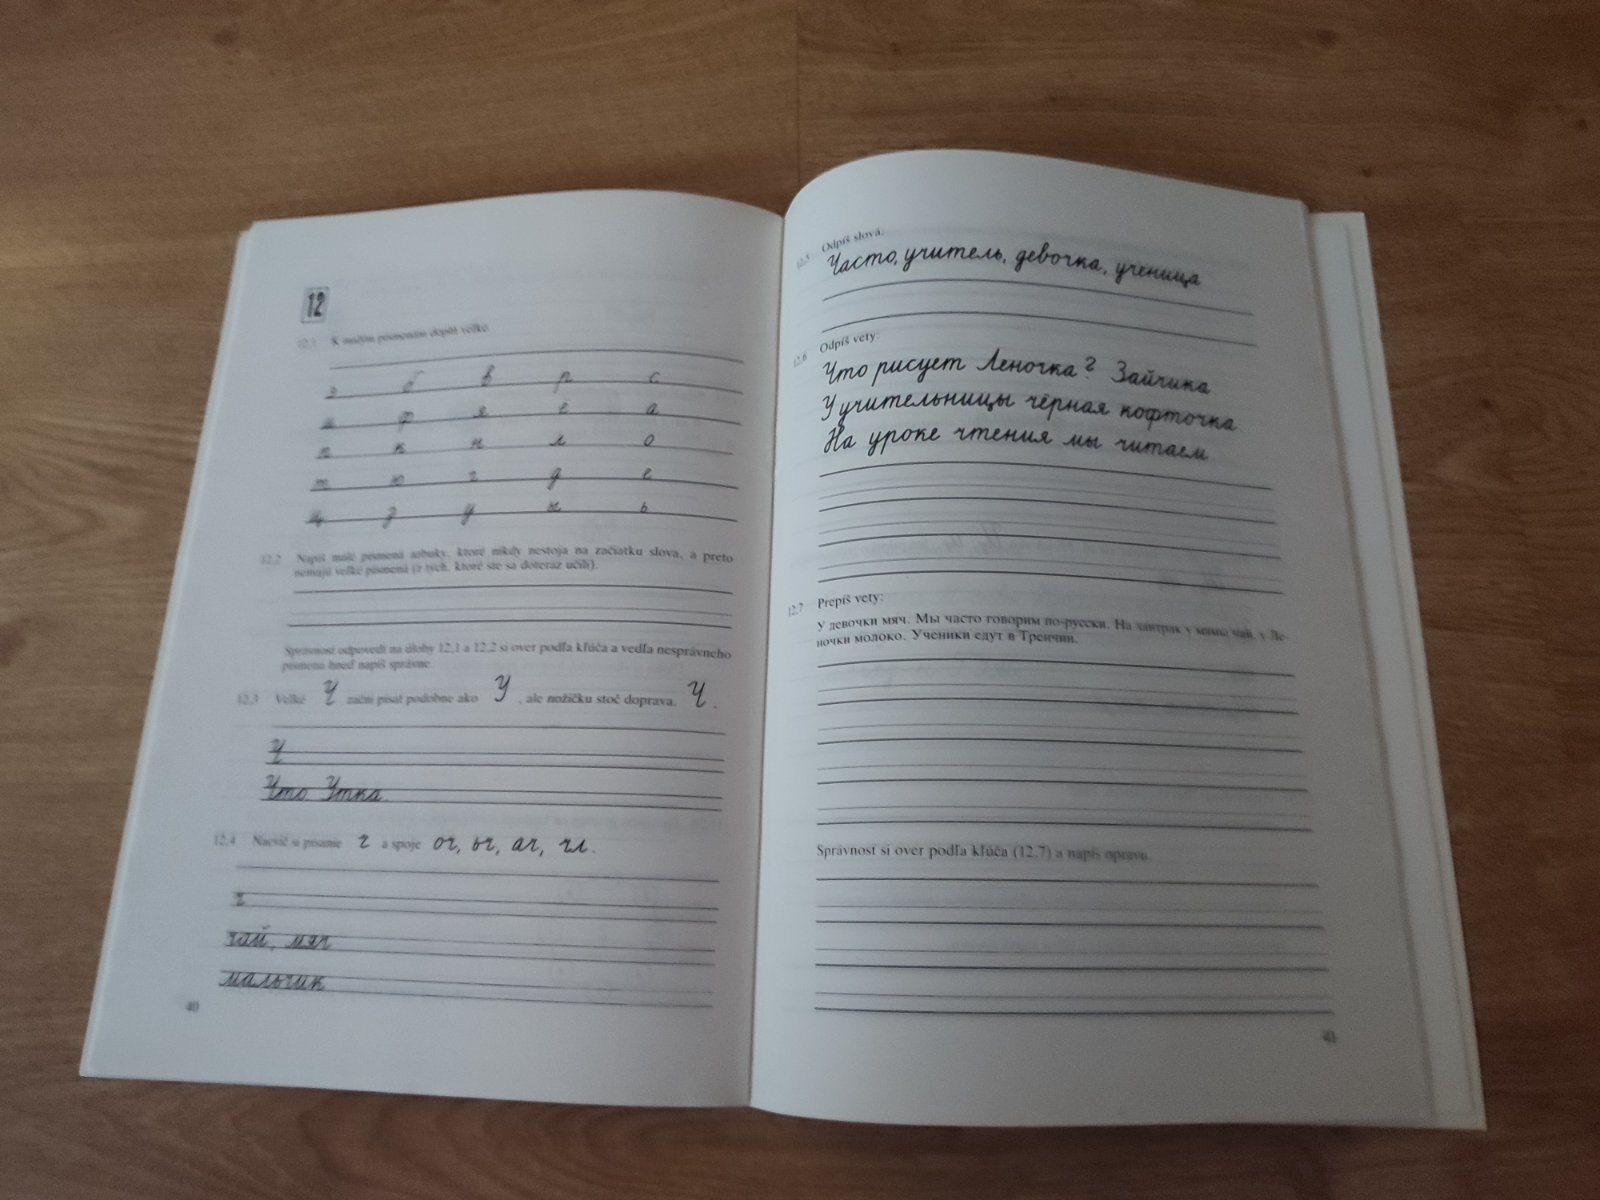 12
12.1 K malým písmenám dopíš veľké.
э б в р с
ф я ё а
п к н л о
т ю г д е
ц з у ь
12.2 Napíš malé písmená azbuky, ktoré nikdy nestoja na začiatku slova, a preto
nemajú veľké písmená (z tých, ktoré ste sa doteraz učili).
Správnosť odpovedí na úlohy 12.1 a 12.2 si over podľa kľúča a vedľa nesprávneho
písmena hneď napíš správne.
12.3 Veľké Ч začni písať podobne ako У , ale nožičku stoč doprava. Ч .
Ч
Что Утка
12.4 Nacvič si písanie ч a spoje оч, ьч, ач, чл.
ч
чай, мяч
мальчик
40
12.5 Odpíš slová:
Часто, учитель, девочка, ученица
12.6 Odpíš vety:
Что рисует Леночка? Зайчика
У учительницы чёрная кофточка
На уроке чтения мы читаем.
12.7 Prepíš vety:
У девочки мяч. Мы часто говорим по-русски. На завтрак у мамы чай, у Ле-
ночки молоко. Ученики едут в Тренчин.
Správnosť si over podľa kľúča (12.7) a napíš opravu.
41